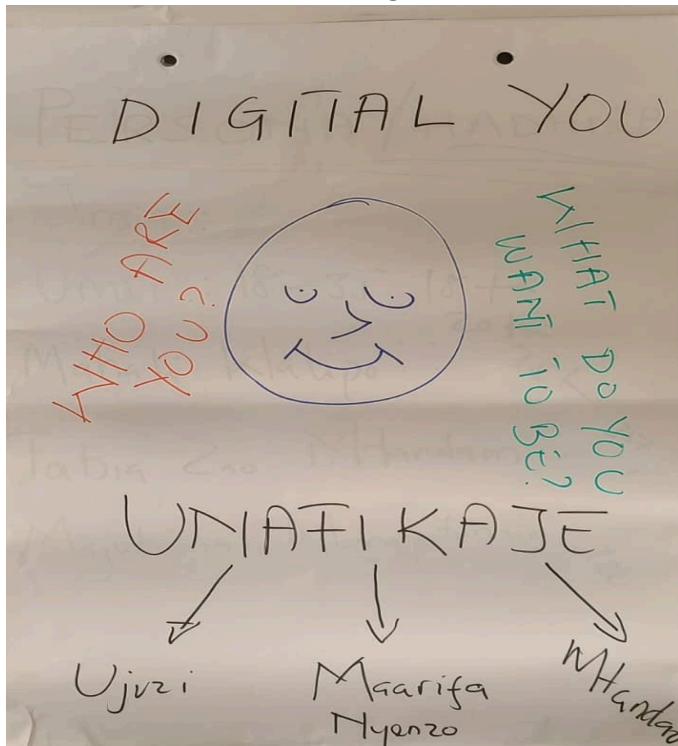 DIGITAL YOU
WHO ARE
YOU?
WHAT DO YOU
WANT TO BE?
UNAFIKAJE
Ujuzi
Maarifa
Nyenzo
Mtandao